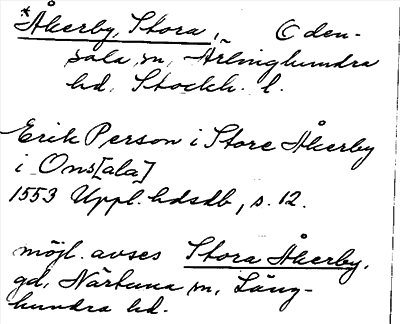 *Åkerby, Stora, Oden-
sala sn, Ärlinghundra
hd, Stockh. l.
Erik Person i Store Åkerby
i Ons[ala]
1553 Uppl. hdsdb, s. 12.
möjl. avses Stora Åkerby,
gd, Närtuna sn, Lång-
hundra hd.